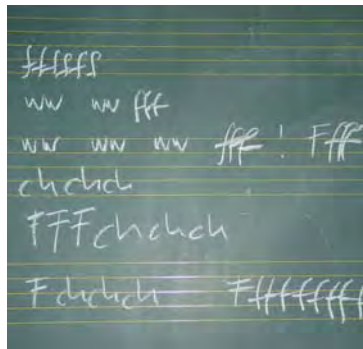 fffffff
ww ww fff
ww ww ww fff ! Ffff
chchch
FFFchchch
Fchchch Fffffffff